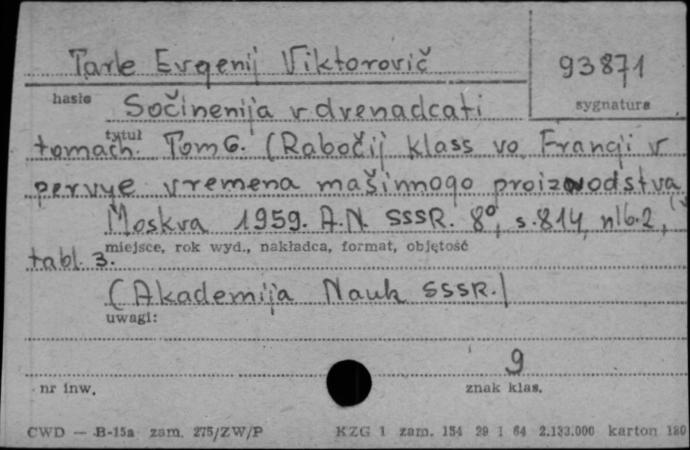 Tarle Evgenij Viktorovič
93871
hasło
sygnatura
Sočinenija v dvenadcati
tytuł
tomach. Tom 6. (Rabočij klass vo Francji v
pervye vremena mašinnogo proizvodstva)
Moskva 1959. A.N. SSSR. 8°, s. 814, nlb. 2,
miejsce, rok wyd., nakładca, format, objętość
tabl. 3.
(Akademija Nauk SSSR.)
uwagi:
9
nr inw.
znak klas.
CWD — B-15a zam. 275/ZW/P
KZG 1 zam. 154 29 1 64 2.133.000 karton 180